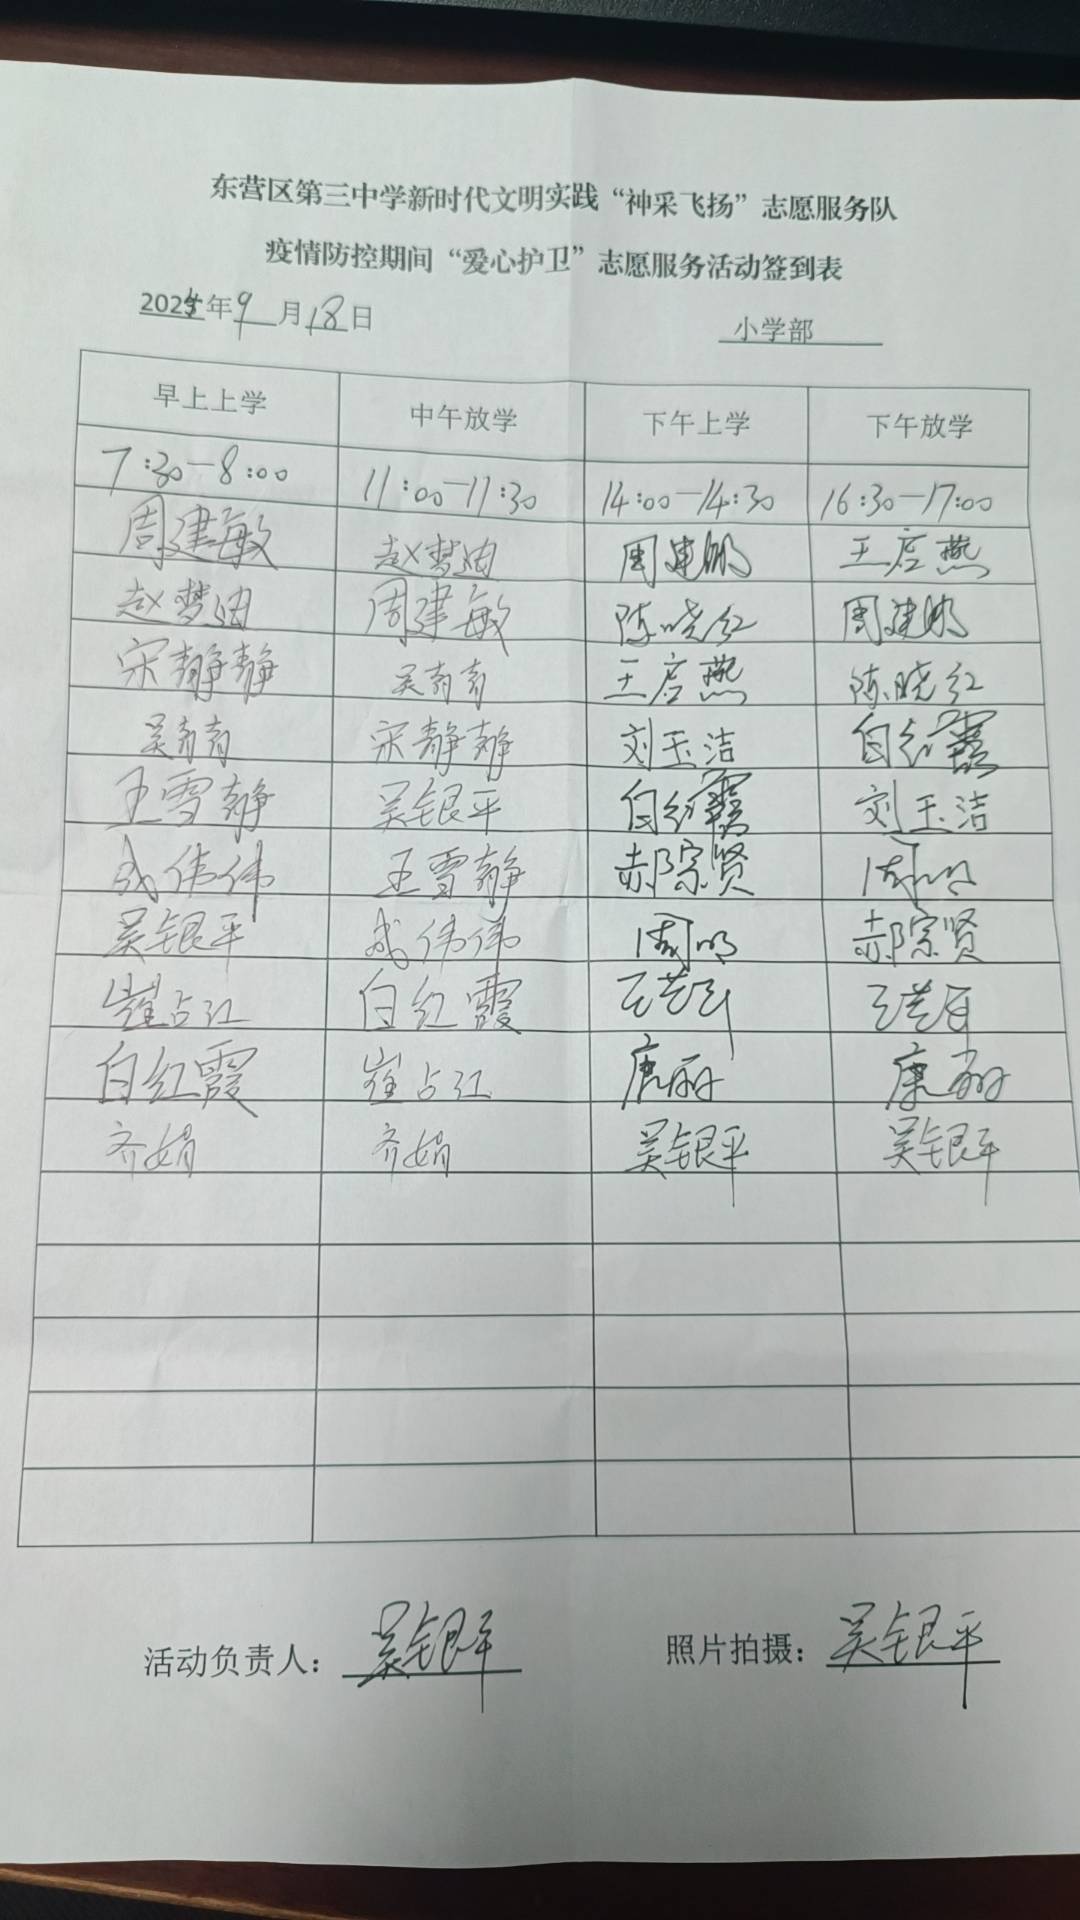 东营区第三中学新时代文明实践“神采飞扬”志愿服务队
疫情防控期间“爱心护卫”志愿服务活动签到表
年9月18日 小学部
早上上学 中午放学 下午上学 下午放学
7:30—8:00 11:00—11:30 14:00—14:30 16:30—17:00
周建敏 赵梦迪 周建鹏 王启燕
赵梦迪 周建敏 陈晓红 周建鹏
宋静静 吴青青 王启燕 陈晓红
吴青青 宋静静 刘玉洁 白红霞
王雪静 吴银平 白红霞 刘玉洁
成伟伟 王雪静 郝宗贤 周明
吴银平 成伟伟 周明 郝宗贤
崔占江 白红霞
白红霞 崔占江 唐丽 康丽
齐娟 齐娟 吴银平 吴银平
活动负责人：吴银平 照片拍摄：吴银平